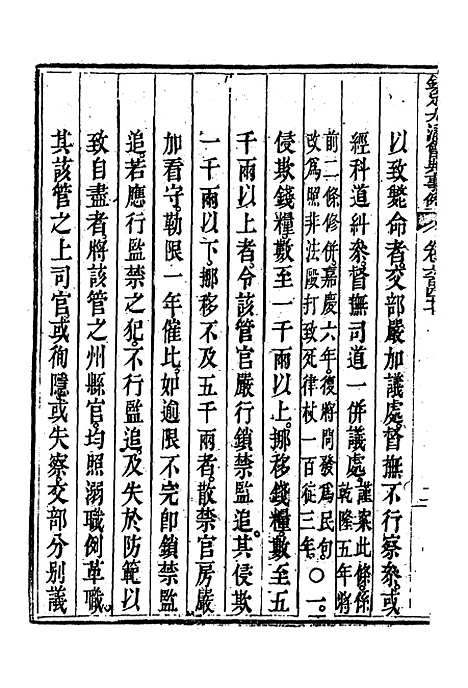 欽定大清會典事例
以致斃命者交部嚴加議處。督撫不行察參。或
經科道糾參。督撫司道一併議處。謹案此條係乾隆五年將
前二條修併。嘉慶六年。復將問發為民句
改為照非法毆打致死律杖一百徒三年。○一。
侵欺錢糧。數至一千兩以上。挪移錢糧。數至五
千兩以上者。令該管官嚴行鎖禁監追。其侵欺
一千兩以下。挪移不及五千兩者。散禁官房嚴
加看守。勒限一年催比。如逾限不完即鎖禁監
追。若應行監禁之犯。不行監追。及失於防範以
致自盡者。將該管之州縣官。均照溺職例革職。
其該管之上司官。或徇隱或失察交部分別議